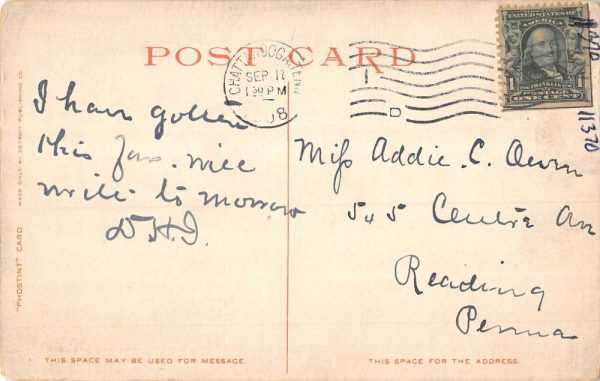 POST CARD
CHATTANOOGA, TENN.
SEP 17
1 30 PM
08
D
UNITED STATES OF AMERICA
1 1
ONE CENT
11370
11370
I have gotten
this far. will
write to morrow
D.H.I.
Miss Addie. C. Owen
545 Centre Av
Reading
Penna.
"PHOSTINT" CARD
MADE ONLY BY DETROIT PUBLISHING CO.
THIS SPACE MAY BE USED FOR MESSAGE.
THIS SPACE FOR THE ADDRESS.